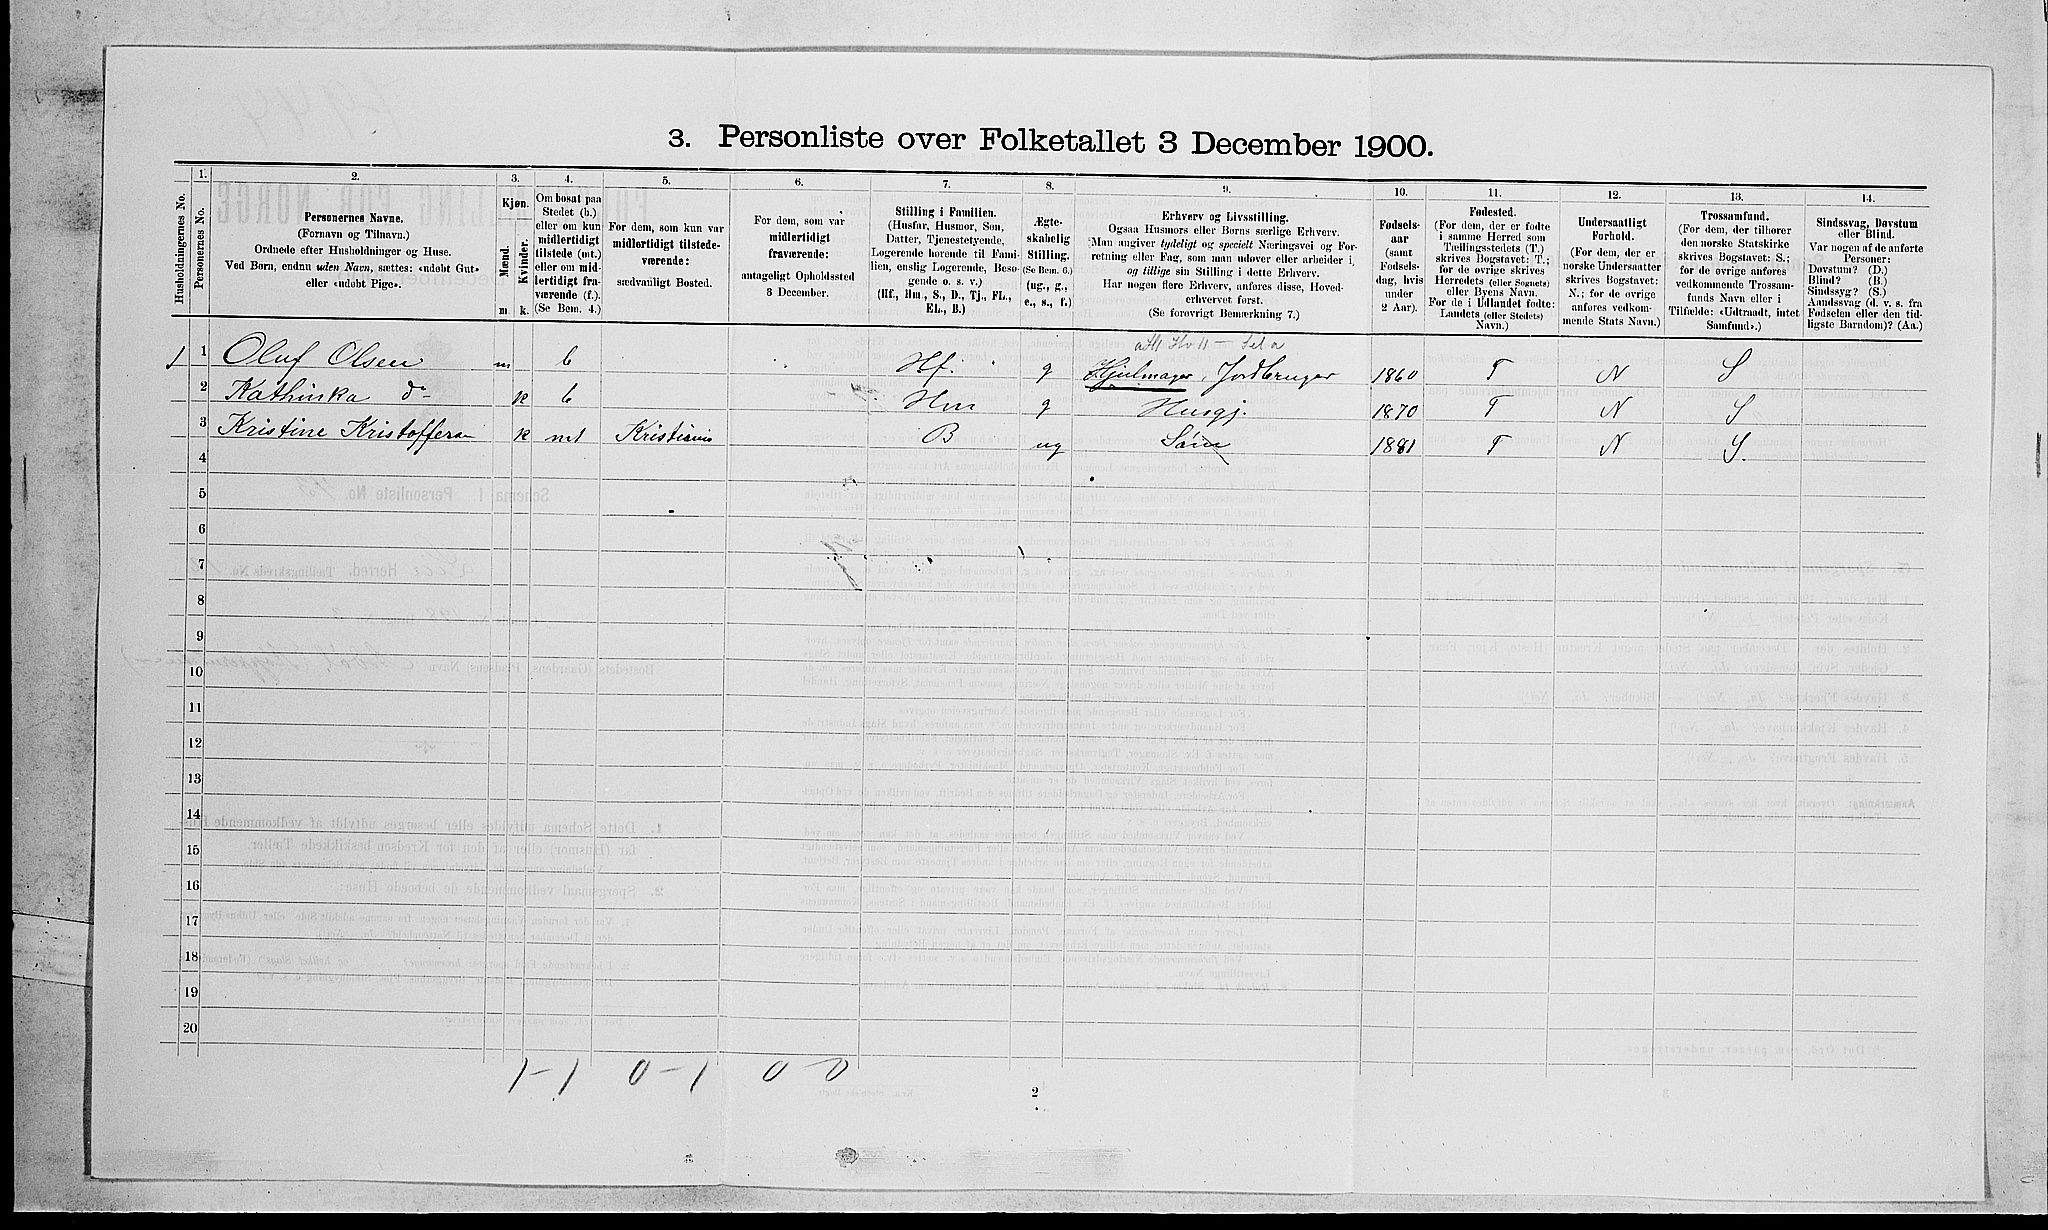 3. Personliste over Folketallet 3 December 1900.
Husholdningernes No.
1.
Personernes No.
2.
Personernes Navne.
(Fornavn og Tilnavn.)
Ordnede efter Husholdninger og Huse.
Ved Børn, endnu uden Navn, sættes: «udøbt Gut»
eller «udøbt Pige».
3.
Kjøn.
Mænd.
Kvinder.
m.
k.
4.
Om bosat paa
Stedet (b.)
eller om kun
midlertidigt
tilstede (mt.)
eller om mid-
lertidigt fra-
værende (f.).
(Se Bem. 4.)
5.
For dem, som kun var
midlertidigt tilstede-
værende:
sædvanligt Bosted.
6.
For dem, som var
midlertidigt
fraværende:
antageligt Opholdssted
3 December.
7.
Stilling i Familien.
(Husfar, Husmor, Søn,
Datter, Tjenestetyende,
Logerende hørende til Fami-
lien, enslig Logerende, Besø-
gende o. s. v.)
(Hf., Hm., S., D., Tj., FL.,
EL., B.)
8.
Ægte-
skabelig
Stilling.
(Se Bem. 6.)
(ug., g.,
e., s., f.)
9.
Erhverv og Livsstilling.
Ogsaa Husmors eller Børns særlige Erhverv.
Man angiver tydeligt og specielt Næringsvei og For-
retning eller Fag, som man udøver eller arbeider i,
og tillige sin Stilling i dette Erhverv.
Har nogen flere Erhverv, anføres disse, Hoved-
erhvervet først.
(Se forøvrigt Bemærkning 7.)
10.
Fødsels-
aar
(samt
Fødsels-
dag, hvis
under
2 Aar).
11.
Fødested.
(For dem, der er fødte
i samme Herred som
Tællingsstedets (T.)
skrives Bogstavet: T.;
for de øvrige skrives
Herredets (eller Sognets)
eller Byens Navn.
For de i Udlandet fødte:
Landets (eller Stedets)
Navn.)
12.
Undersaatligt
Forhold.
(For dem, der er
norske Undersaatter
skrives Bogstavet:
N.; for de øvrige
anføres vedkom-
mende Stats Navn.)
13.
Trossamfund.
(For dem, der tilhører
den norske Statskirke
skrives Bogstavet: S.;
for de øvrige anføres
vedkommende Trossam-
funds Navn eller i
Tilfælde: «Udtraadt, intet
Samfund».)
14.
Sindssvag, Døvstum
eller Blind.
Var nogen af de anførte
Personer:
Døvstum? (D.)
Blind? (B.)
Sindssyg? (S.)
Aandssvag (d. v. s. fra
Fødselen eller den tid-
ligste Barndom)? (Aa.)
1 1 Oluf Olsen m b Hf. g Hjulmager, Jordbruger 1860 T N S
2 Kathinka do k b Hm g Husgj. 1870 T N S
3 Kristine Kristoffersen k mt Kristiania B ug 1881 T N S.
4
5
6
7
8
9
10
11
12
13
14
15
16
17
18
19
20
1-1 0-1 0 0
2